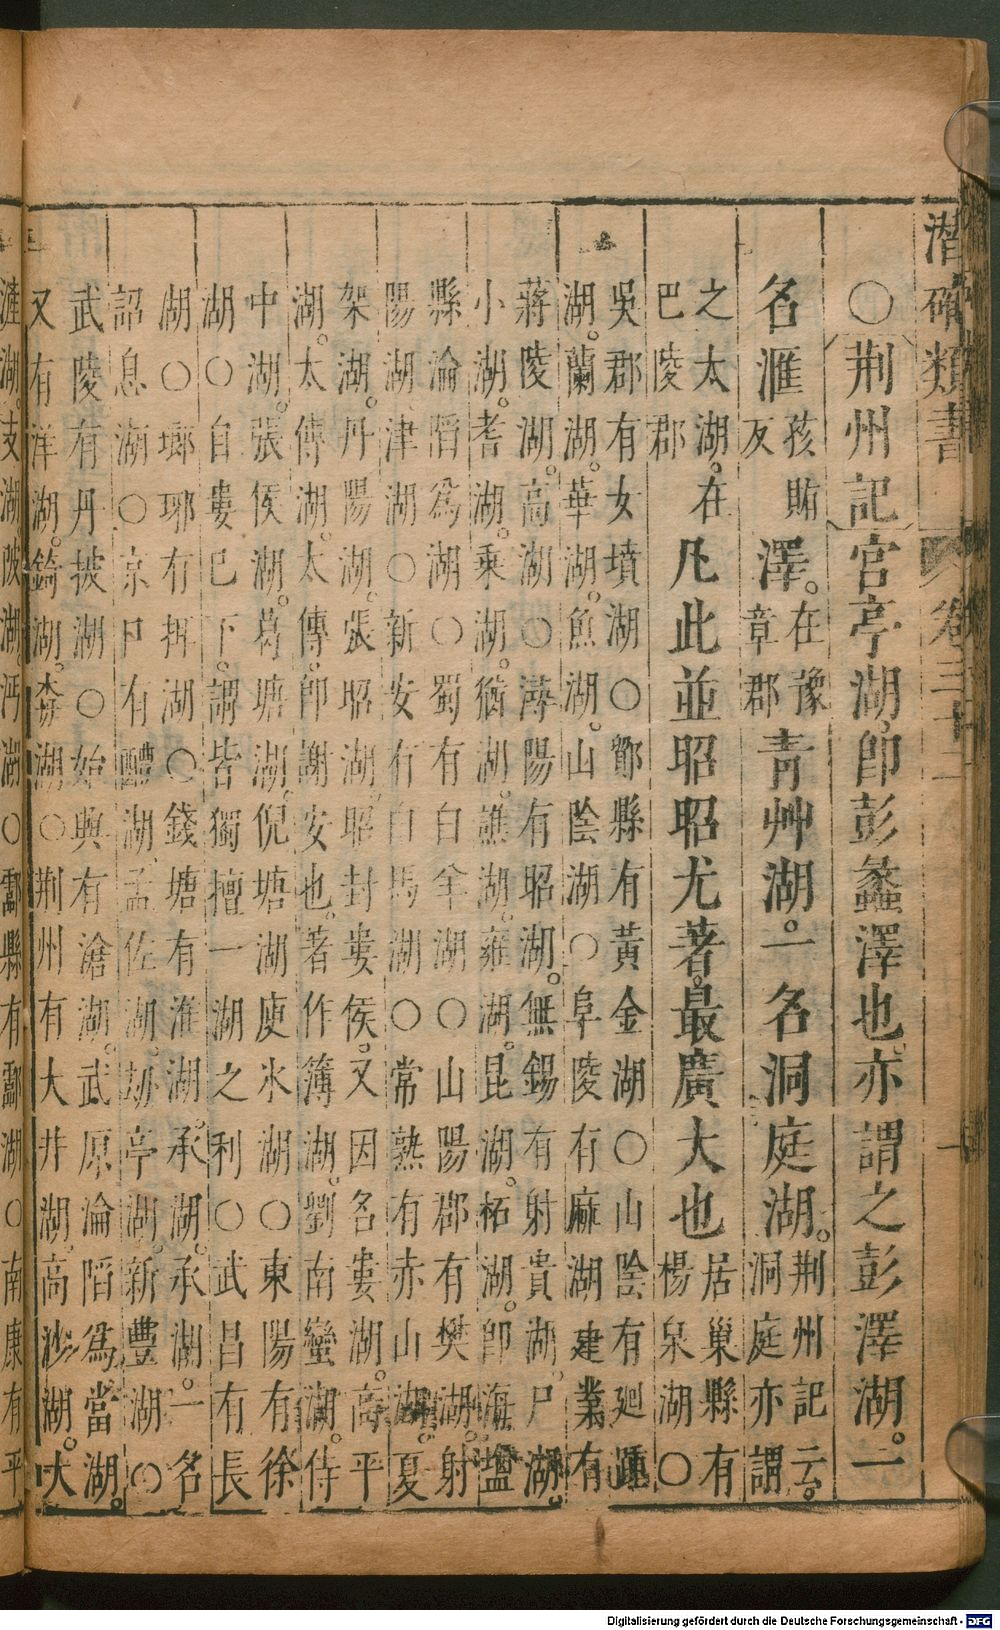 潛確類書 卷三十二
○荆州記宫亭湖。即彭蠡澤也。亦謂之彭澤湖。一
名滙
孩賄
反
澤。
在豫
章郡
青艸湖。一名洞庭湖。
荆州記云。
洞庭亦謂
之太湖。在
巴陵郡
凡此並昭昭尤著。最廣大也
居巢縣有
楊泉湖○
吳郡有女墳湖○鄮縣有黄金湖○山陰有廻踵
湖。蘭湖。華湖。魚湖。山陰湖○阜陵有麻湖建業有
蔣陵湖。高湖○潯陽有昭湖。無錫有射貴湖尸湖。
小湖。耆湖。乗湖。猶湖。譙湖。雍湖。昆湖。柘湖。即海鹽
縣淪䧟為湖○蜀有白羊湖○山陽郡有樊湖。射
陽湖津湖○新安有白馬湖○常熟有赤山湖。夏
架湖。丹陽湖。張昭湖。昭封婁侯。又因名婁湖。高平
湖。太傅湖。太傅。即謝安也。著作簿湖。劉南蠻湖。侍
中湖。張侯湖。葛塘湖。倪塘湖庾氷湖○東陽有徐
湖○自婁巳下。謂皆獨擅一湖之利○武昌有長
湖○瑯琊有湖○錢塘有淮湖。承湖。承湖。一名
詔息湖○京口有醴湖。孟佐湖。亭湖。新豐湖○
武陵有丹披湖○始興有滄湖。武原淪䧟為當湖。
又有洋湖。錡湖。湖○荆州有大井湖。高沙湖。大
湖。芰湖陂湖。沔湖○酃縣有酃湖○南康有平
Digitalisierung gefördert durch die Deutsche Forschungsgemeinschaft - DFG